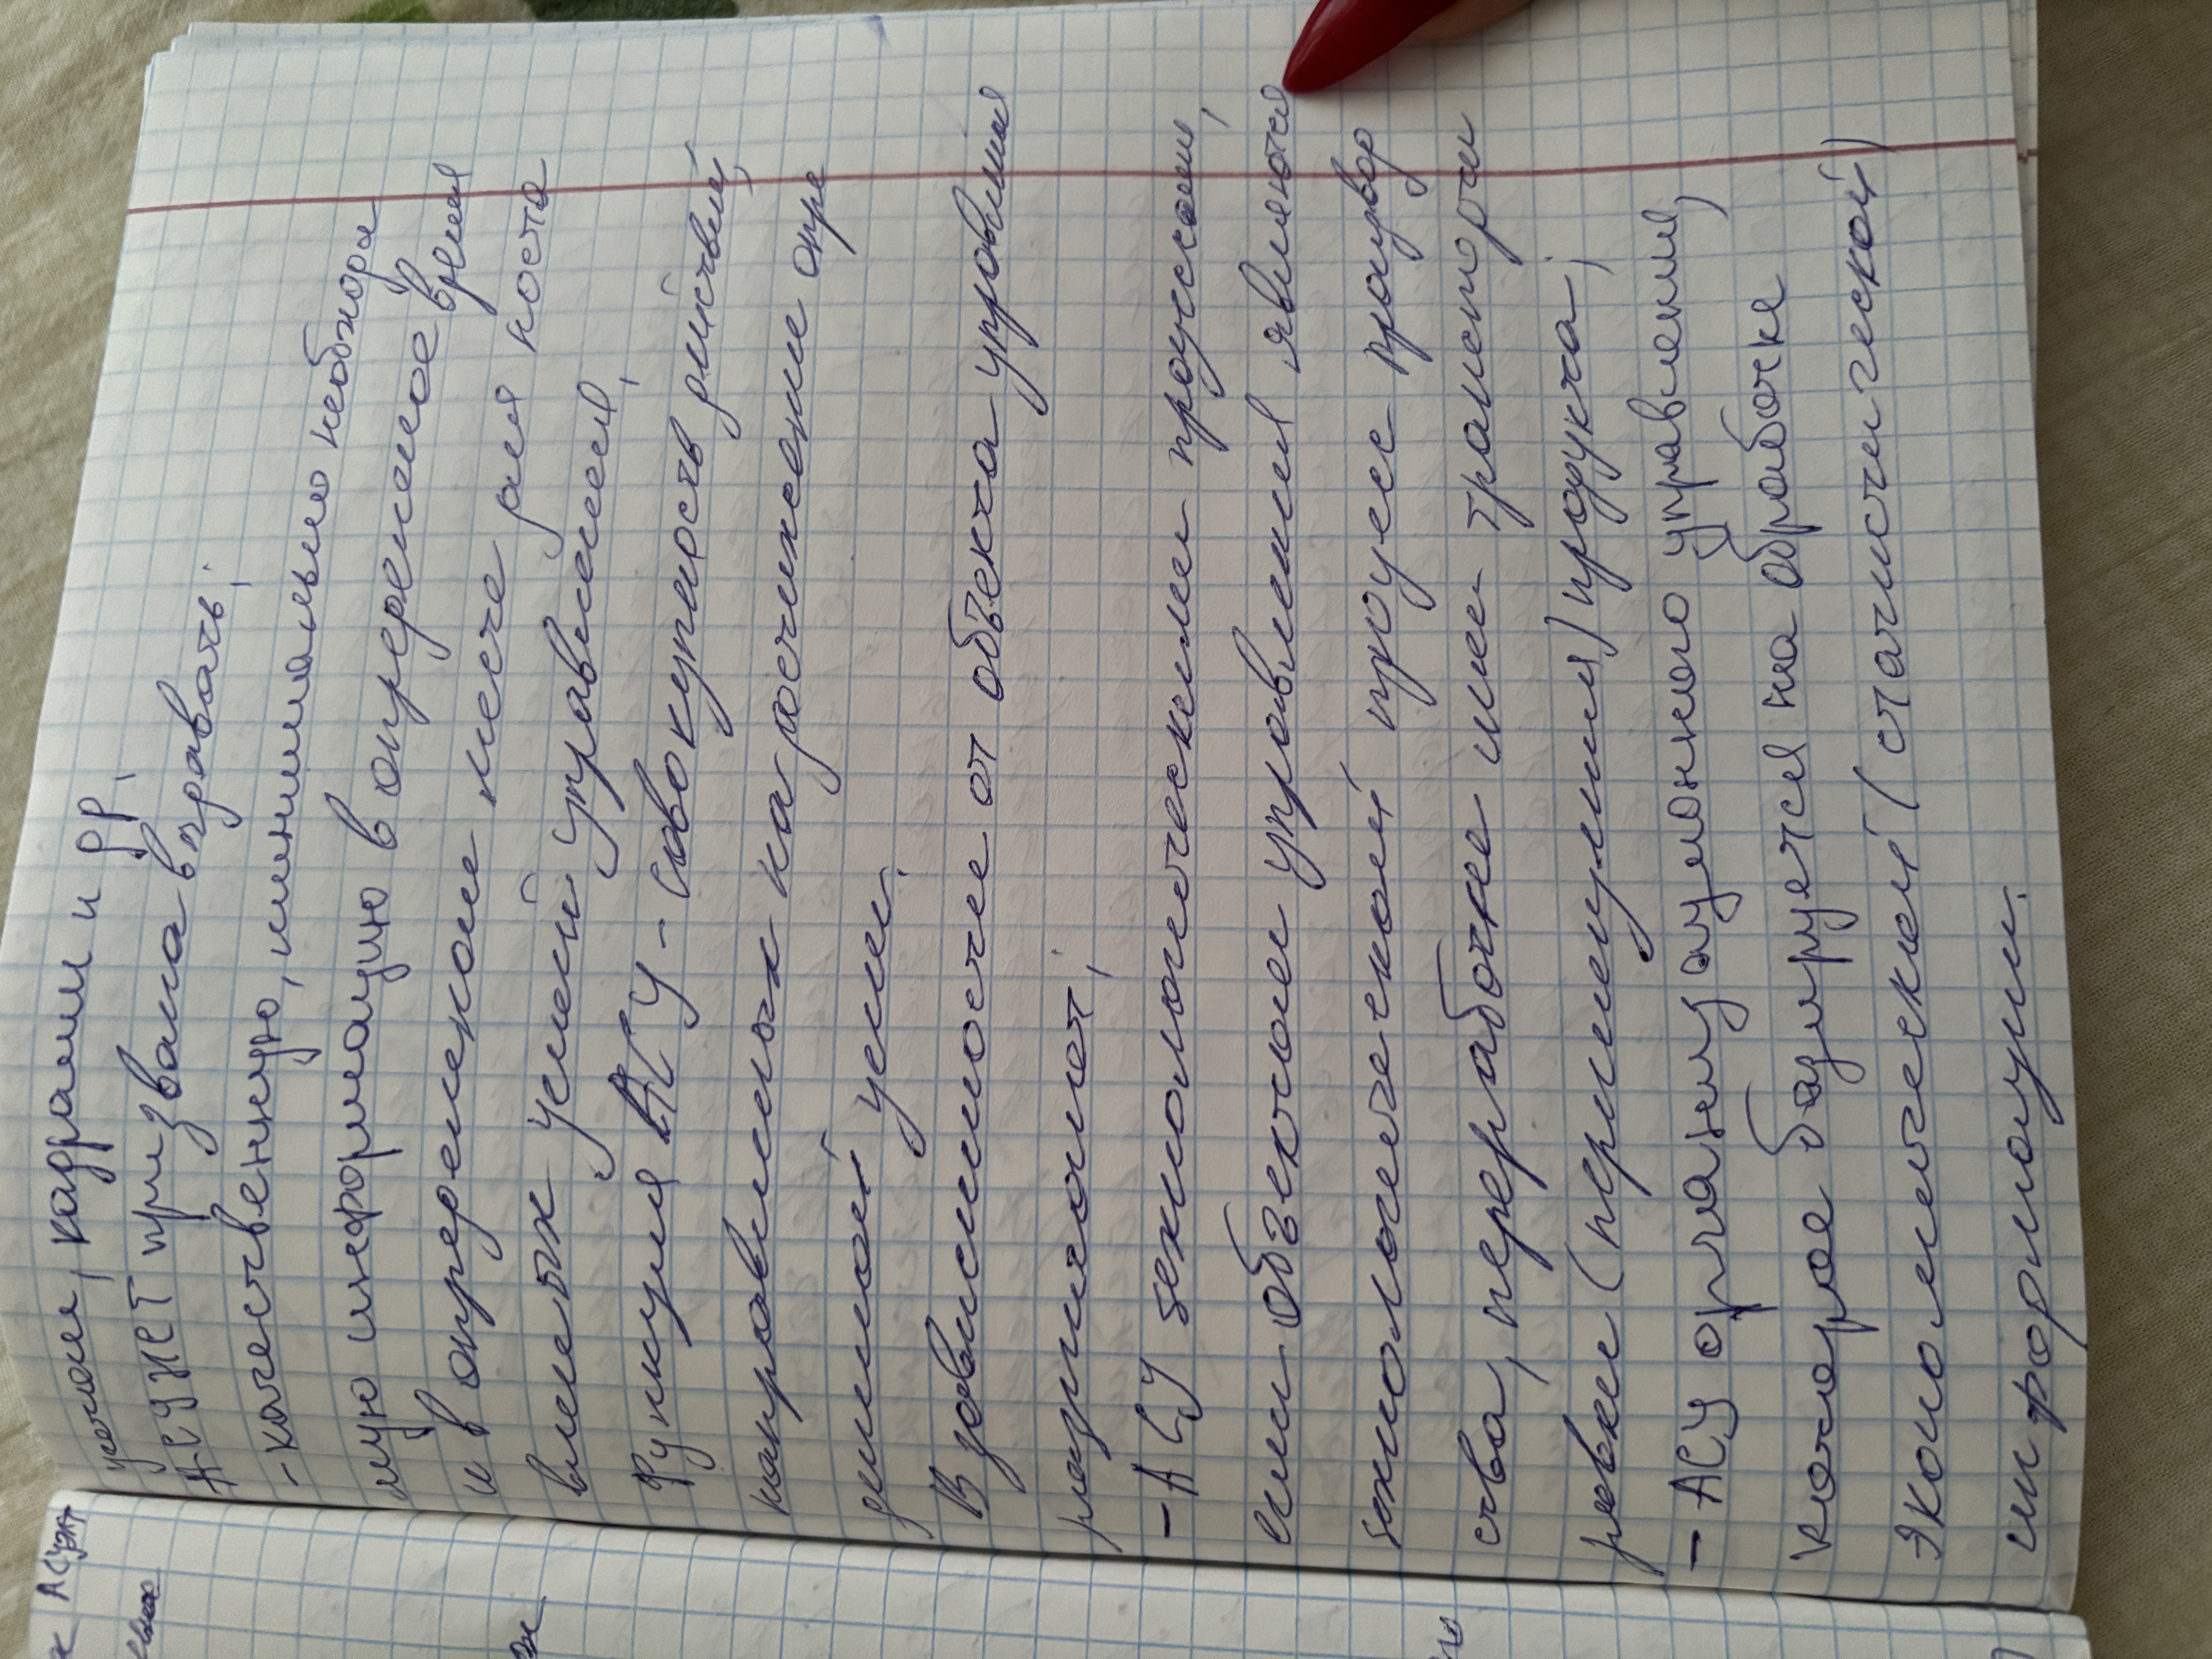 х АСУЖТ
учетом, кадрами и др.
АСУЖТ призвана выдавать:
- качественную, минимально необходи
мую информацию в определенное время
и в определенном месте для поста
вленных целей управления.
Функция АСУ - совокупность действий,
направленных на достижение опре
деленной цели.
В зависимости от объекта управления
различают:
- АСУ технологическими процессами,
если объектом управления является
технологический процесс производ
ства, переработки или транспорти
ровки (перемещения) продукта;
- АСУ организационного управления,
которое базируется на обработке
экономической (статистической)
информации.